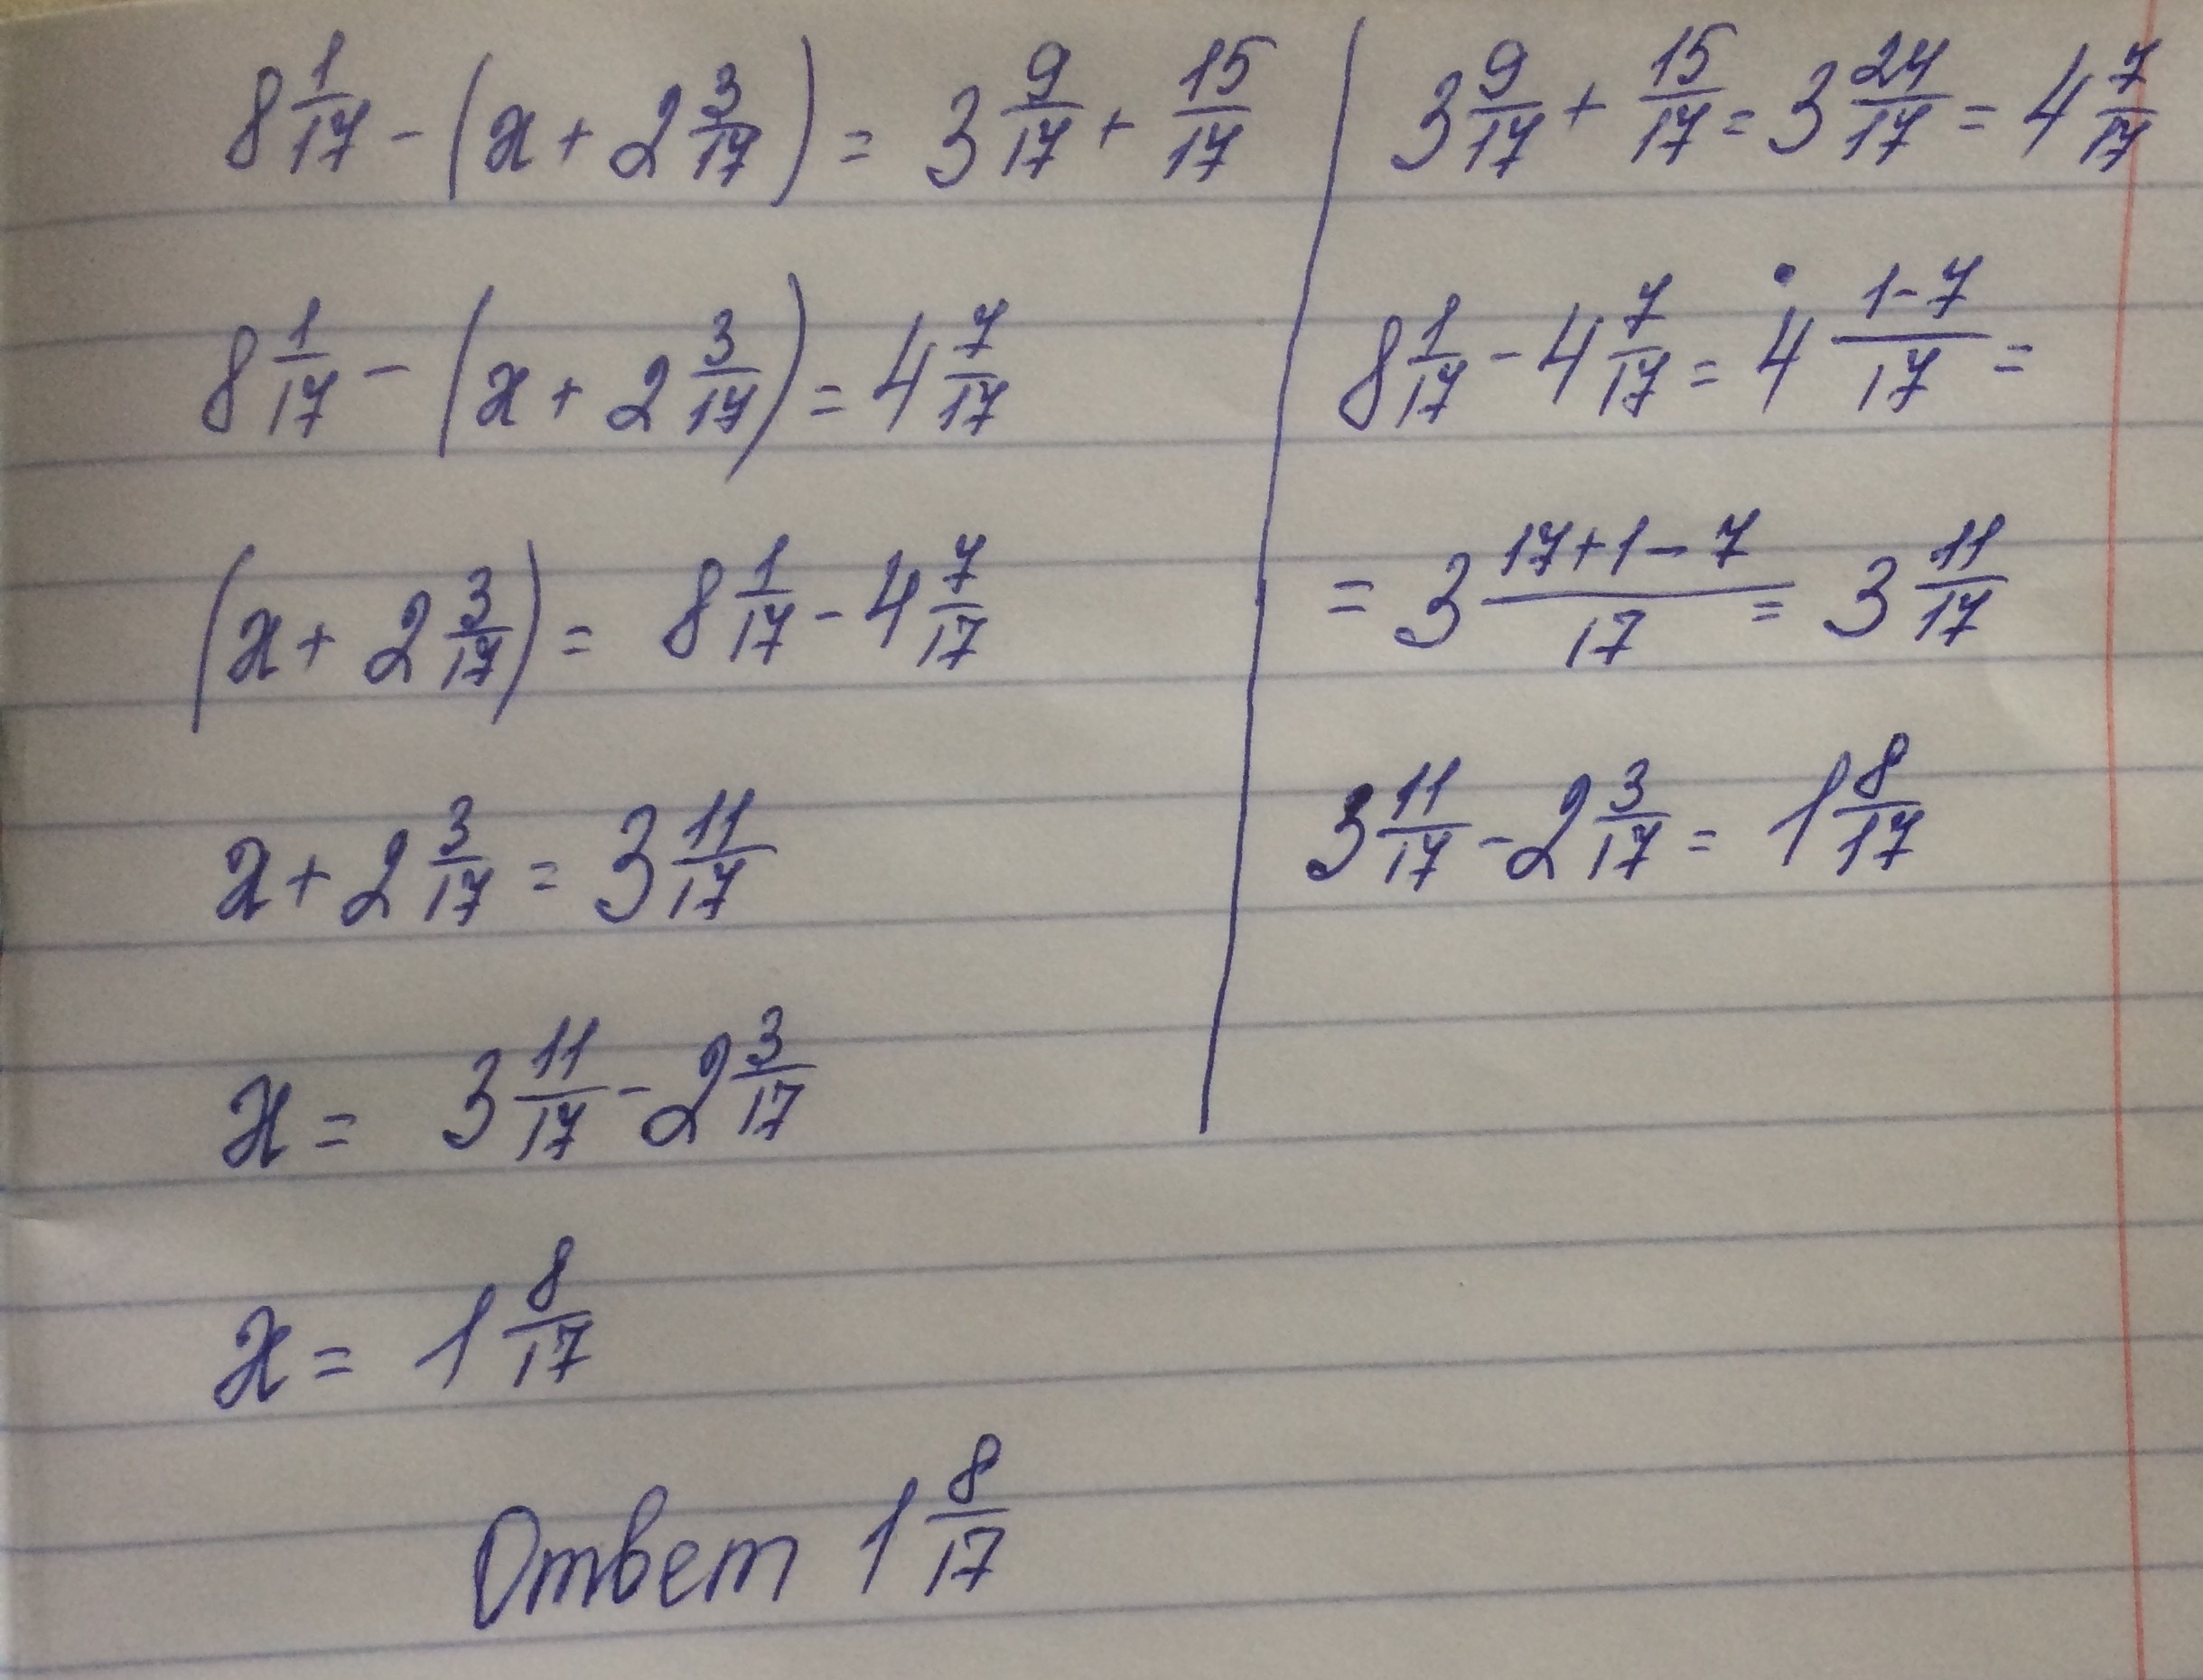 8 1/17 - (x + 2 3/17) = 3 9/17 + 15/17
8 1/17 - (x + 2 3/17) = 4 7/17
(x + 2 3/17) = 8 1/17 - 4 7/17
x + 2 3/17 = 3 11/17
x = 3 11/17 - 2 3/17
x = 1 8/17
Ответ 1 8/17
3 9/17 + 15/17 = 3 24/17 = 4 7/17
8 1/17 - 4 7/17 = 4 (1-7)/17 =
= 3 (17+1-7)/17 = 3 11/17
3 11/17 - 2 3/17 = 1 8/17